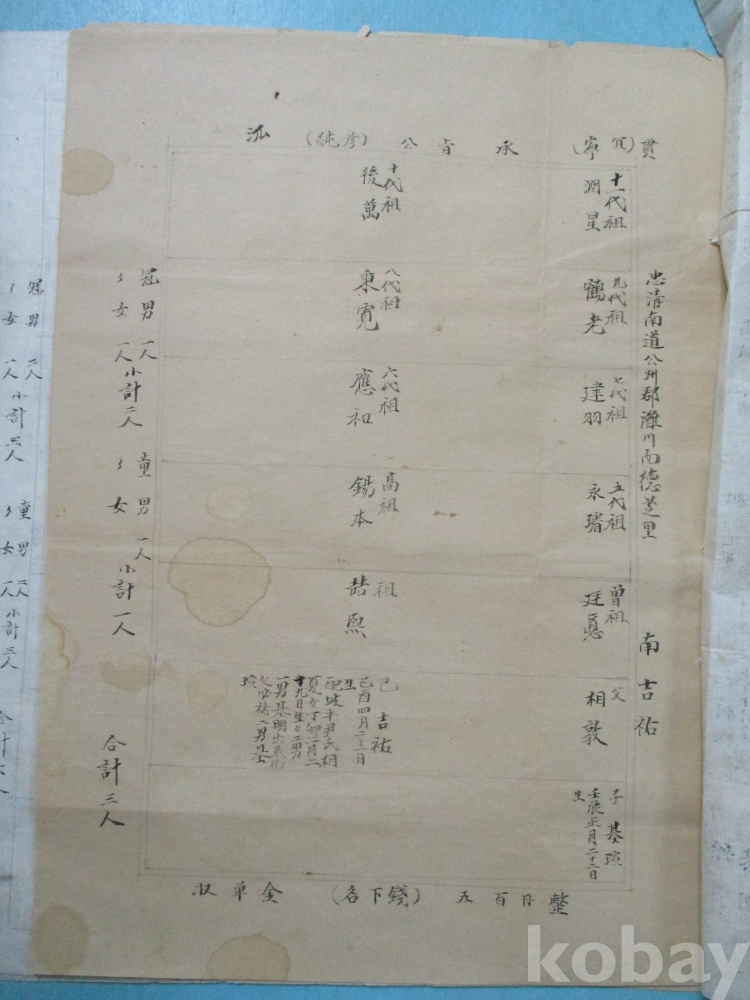 貫 (宜寧) 承旨公 (彦純) 派
忠淸南道公州郡灘川面德芝里 南吉祐
十一代祖
潤星
十代祖
後萬
九代祖
鶴老
八代祖
秉寬
七代祖
建羽
六代祖
應和
五代祖
永璿
高祖
錫本
曾祖
廷愚
祖
喆熙
父
相敦
己 吉祐
己酉四月二十一日
生
配坡平尹氏相
女丁卯一月二
十九日生
一男基明
二男基
瑄
子 基瑄
壬辰正月二十三日
生
整 円百五 (各下錢) 金單収
冠男 一人
〃女 一人
小計二人
童男 一人
〃女
小計一人
合計三人
冠男 二人
〃女 一人
小計三人
童男 二人
〃女 一人
小計三人
合計六人
kobay